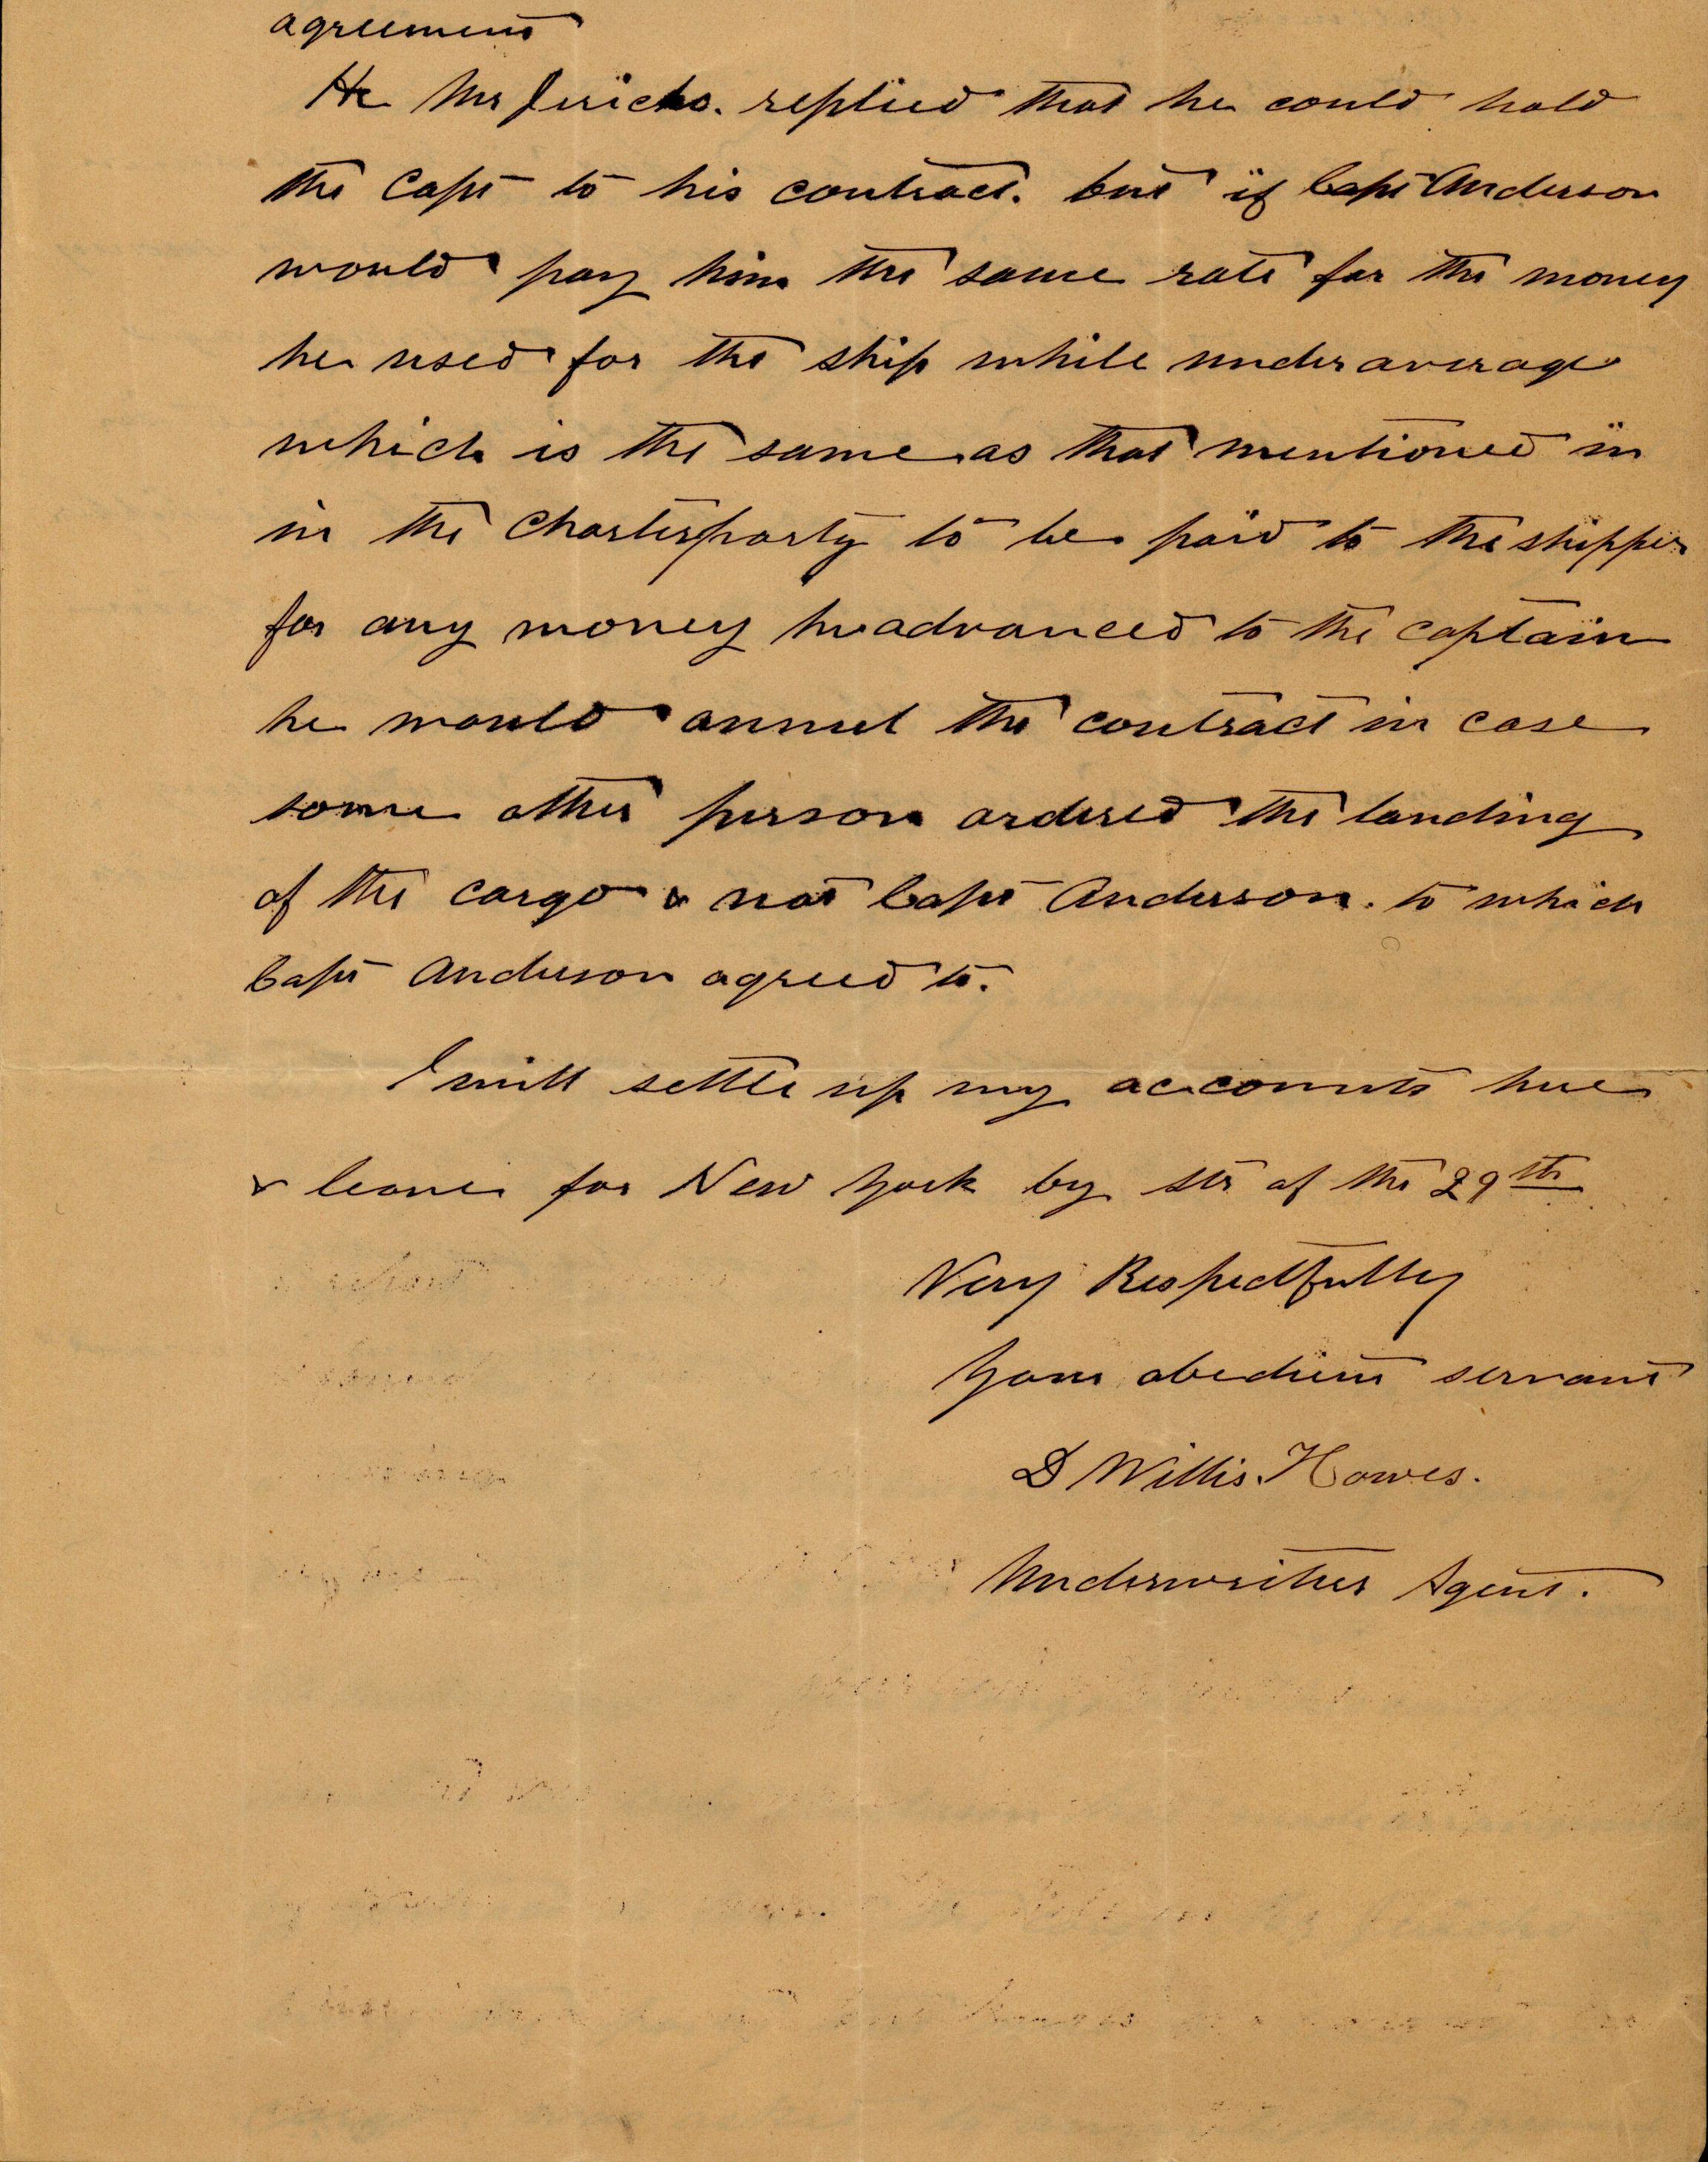 agreement
He Mr Jericho. replied that he could hold
the Capt to his contract. but if Capt Anderson
would pay him the same rate for the money
he used for the ship while under average
which is the same as that mentioned in
in the Charterparty to be paid to the shipper
for any money he advanced to the captain
he would annul the contract in case
some other person ordered the landing
of the cargo & not Capt Anderson. to which
Capt Anderson agreed to.
I will settle up my accounts here
& leave for New York by str of the 29th
Very Respectfully
Your obedient servant
D Willis Howes.
Underwriters Agent.